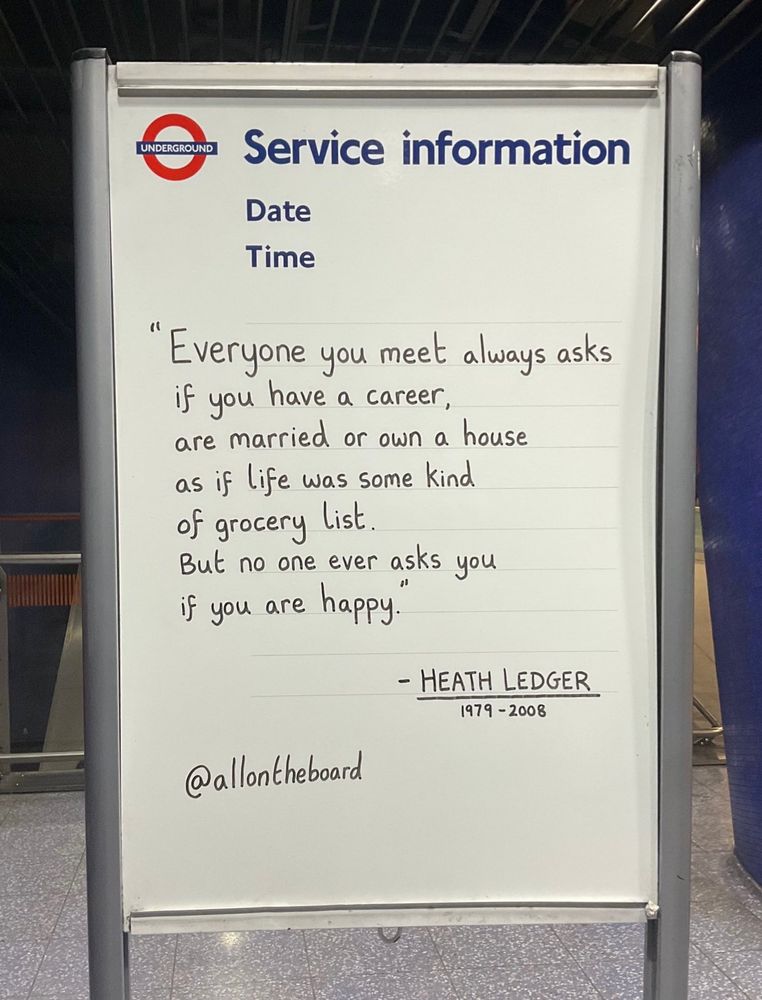 UNDERGROUND
Service information
Date
Time
"Everyone you meet always asks
if you have a career,
are married or own a house
as if life was some kind
of grocery list.
But no one ever asks you
if you are happy."
- HEATH LEDGER
1979-2008
@allontheboard